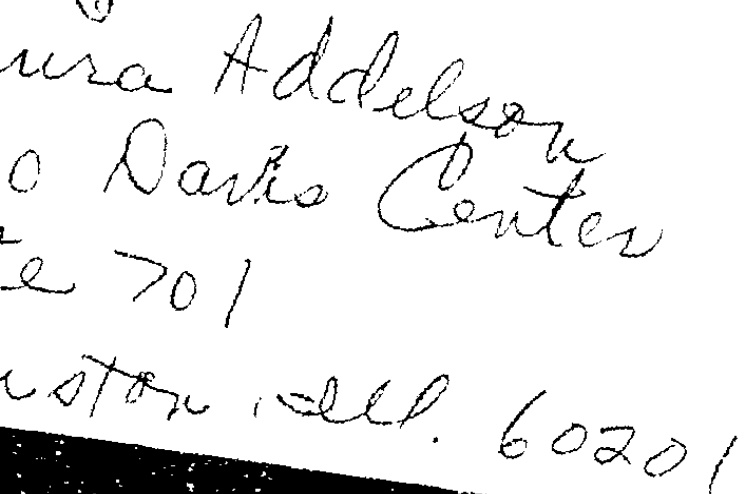 ura Addelson
0 Davis Center
te 701
nston, Ill. 60201